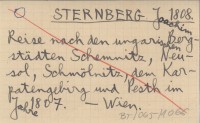 STERNBERG Joachim 1808.
Reise nach den ungarischen Berg-
städten Schemnitz, Neu-
sol, Schmölnitz, dem Kar-
patengebirg und Pesth im
Jahre 1807. — Wien.